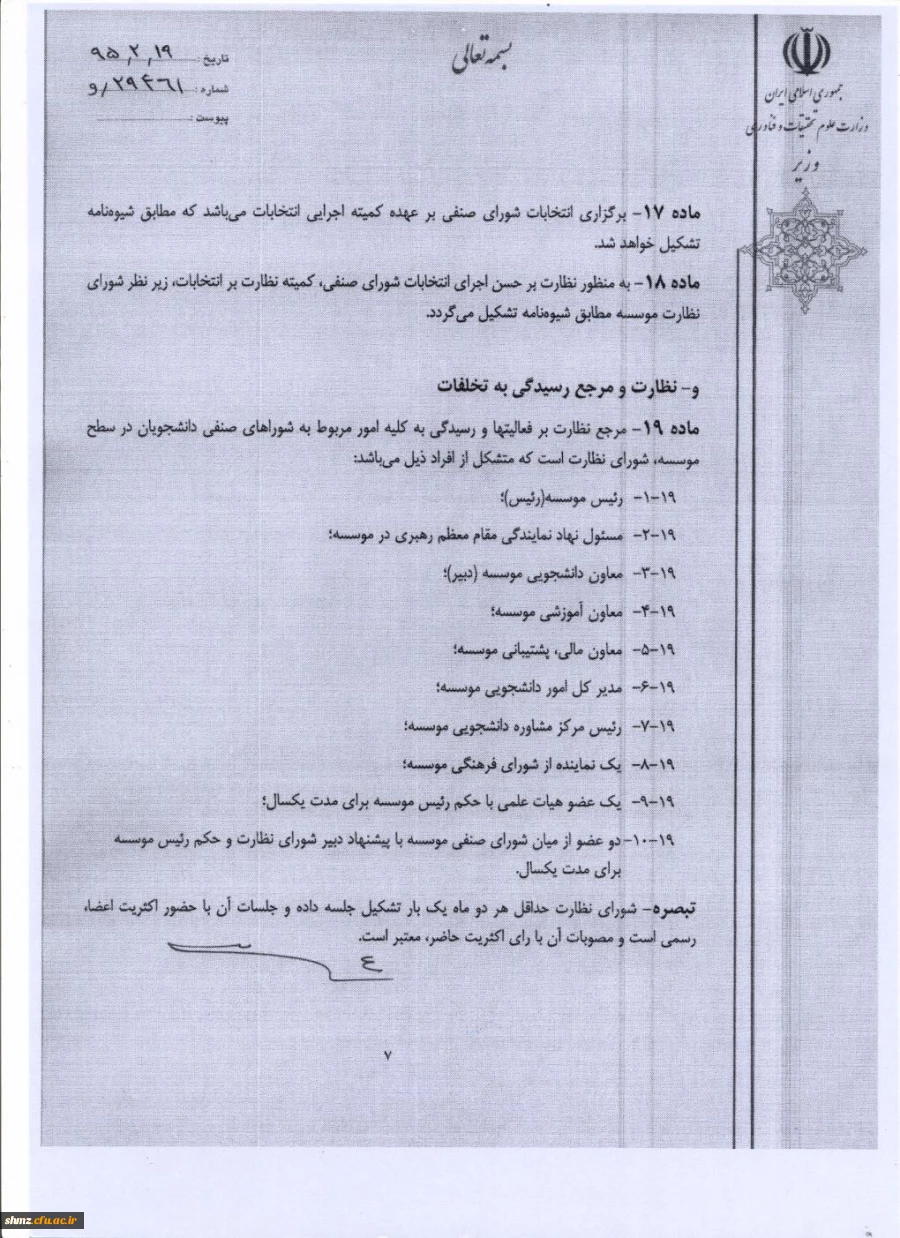 بسمه تعالی
جمهوری اسلامی ایران
وزارت علوم تحقیقات و فناوری
وزیر
تاریخ: ۹۵٫۲٫۱۹
شماره: ۲۹۴۶۱٫و
پیوست:
ماده ۱۷- برگزاری انتخابات شورای صنفی بر عهده کمیته اجرایی انتخابات می‌باشد که مطابق شیوه‌نامه
تشکیل خواهد شد.
ماده ۱۸- به منظور نظارت بر حسن اجرای انتخابات شورای صنفی، کمیته نظارت بر انتخابات، زیر نظر شورای
نظارت موسسه مطابق شیوه‌نامه تشکیل می‌گردد.
و- نظارت و مرجع رسیدگی به تخلفات
ماده ۱۹- مرجع نظارت بر فعالیتها و رسیدگی به کلیه امور مربوط به شوراهای صنفی دانشجویان در سطح
موسسه، شورای نظارت است که متشکل از افراد ذیل می‌باشد:
۱۹-۱- رئیس موسسه(رئیس)؛
۱۹-۲- مسئول نهاد نمایندگی مقام معظم رهبری در موسسه؛
۱۹-۳- معاون دانشجویی موسسه (دبیر)؛
۱۹-۴- معاون آموزشی موسسه؛
۱۹-۵- معاون مالی، پشتیبانی موسسه؛
۱۹-۶- مدیر کل امور دانشجویی موسسه؛
۱۹-۷- رئیس مرکز مشاوره دانشجویی موسسه؛
۱۹-۸- یک نماینده از شورای فرهنگی موسسه؛
۱۹-۹- یک عضو هیات علمی با حکم رئیس موسسه برای مدت یکسال؛
۱۹-۱۰- دو عضو از میان شورای صنفی موسسه با پیشنهاد دبیر شورای نظارت و حکم رئیس موسسه
برای مدت یکسال.
تبصره- شورای نظارت حداقل هر دو ماه یک بار تشکیل جلسه داده و جلسات آن با حضور اکثریت اعضا،
رسمی است و مصوبات آن با رای اکثریت حاضر، معتبر است.
۷
shmz.cfu.ac.ir